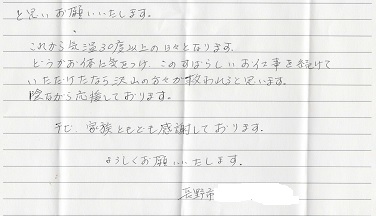 と思いお願いいたします。
これから気温30度以上の日々となります。
どうかお体に気をつけ、このすばらしいお仕事を続けて
いただけたなら沢山の方々が救われると思います。
陰ながら応援しております。
家族ともども感謝しております。
よろしくお願いいたします。
長野市